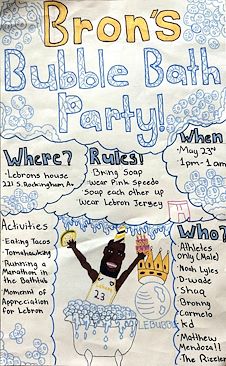 Bron's
Bubble Bath
Party!
Where?
-Lebrons house
221 S. Rockingham Av
Rules!
Bring Soap
Wear Pink Speedo
Soap each other up
Wear Lebron Jersey
When
-May 23rd
-1pm-1am
Activities
-Eating Tacos
-Tomahawking
-Running a
Marathon in
the Bathtub
-Moment of
Appreciation
for Lebron
Who?
-Athletes
only (Male)
-Noah Lyles
-D-wade
-Shaq
-Bronny
-Carmelo
-Kd
-Matthew
Mendoza!!
-The Rizzler
23
LEBUBBLE